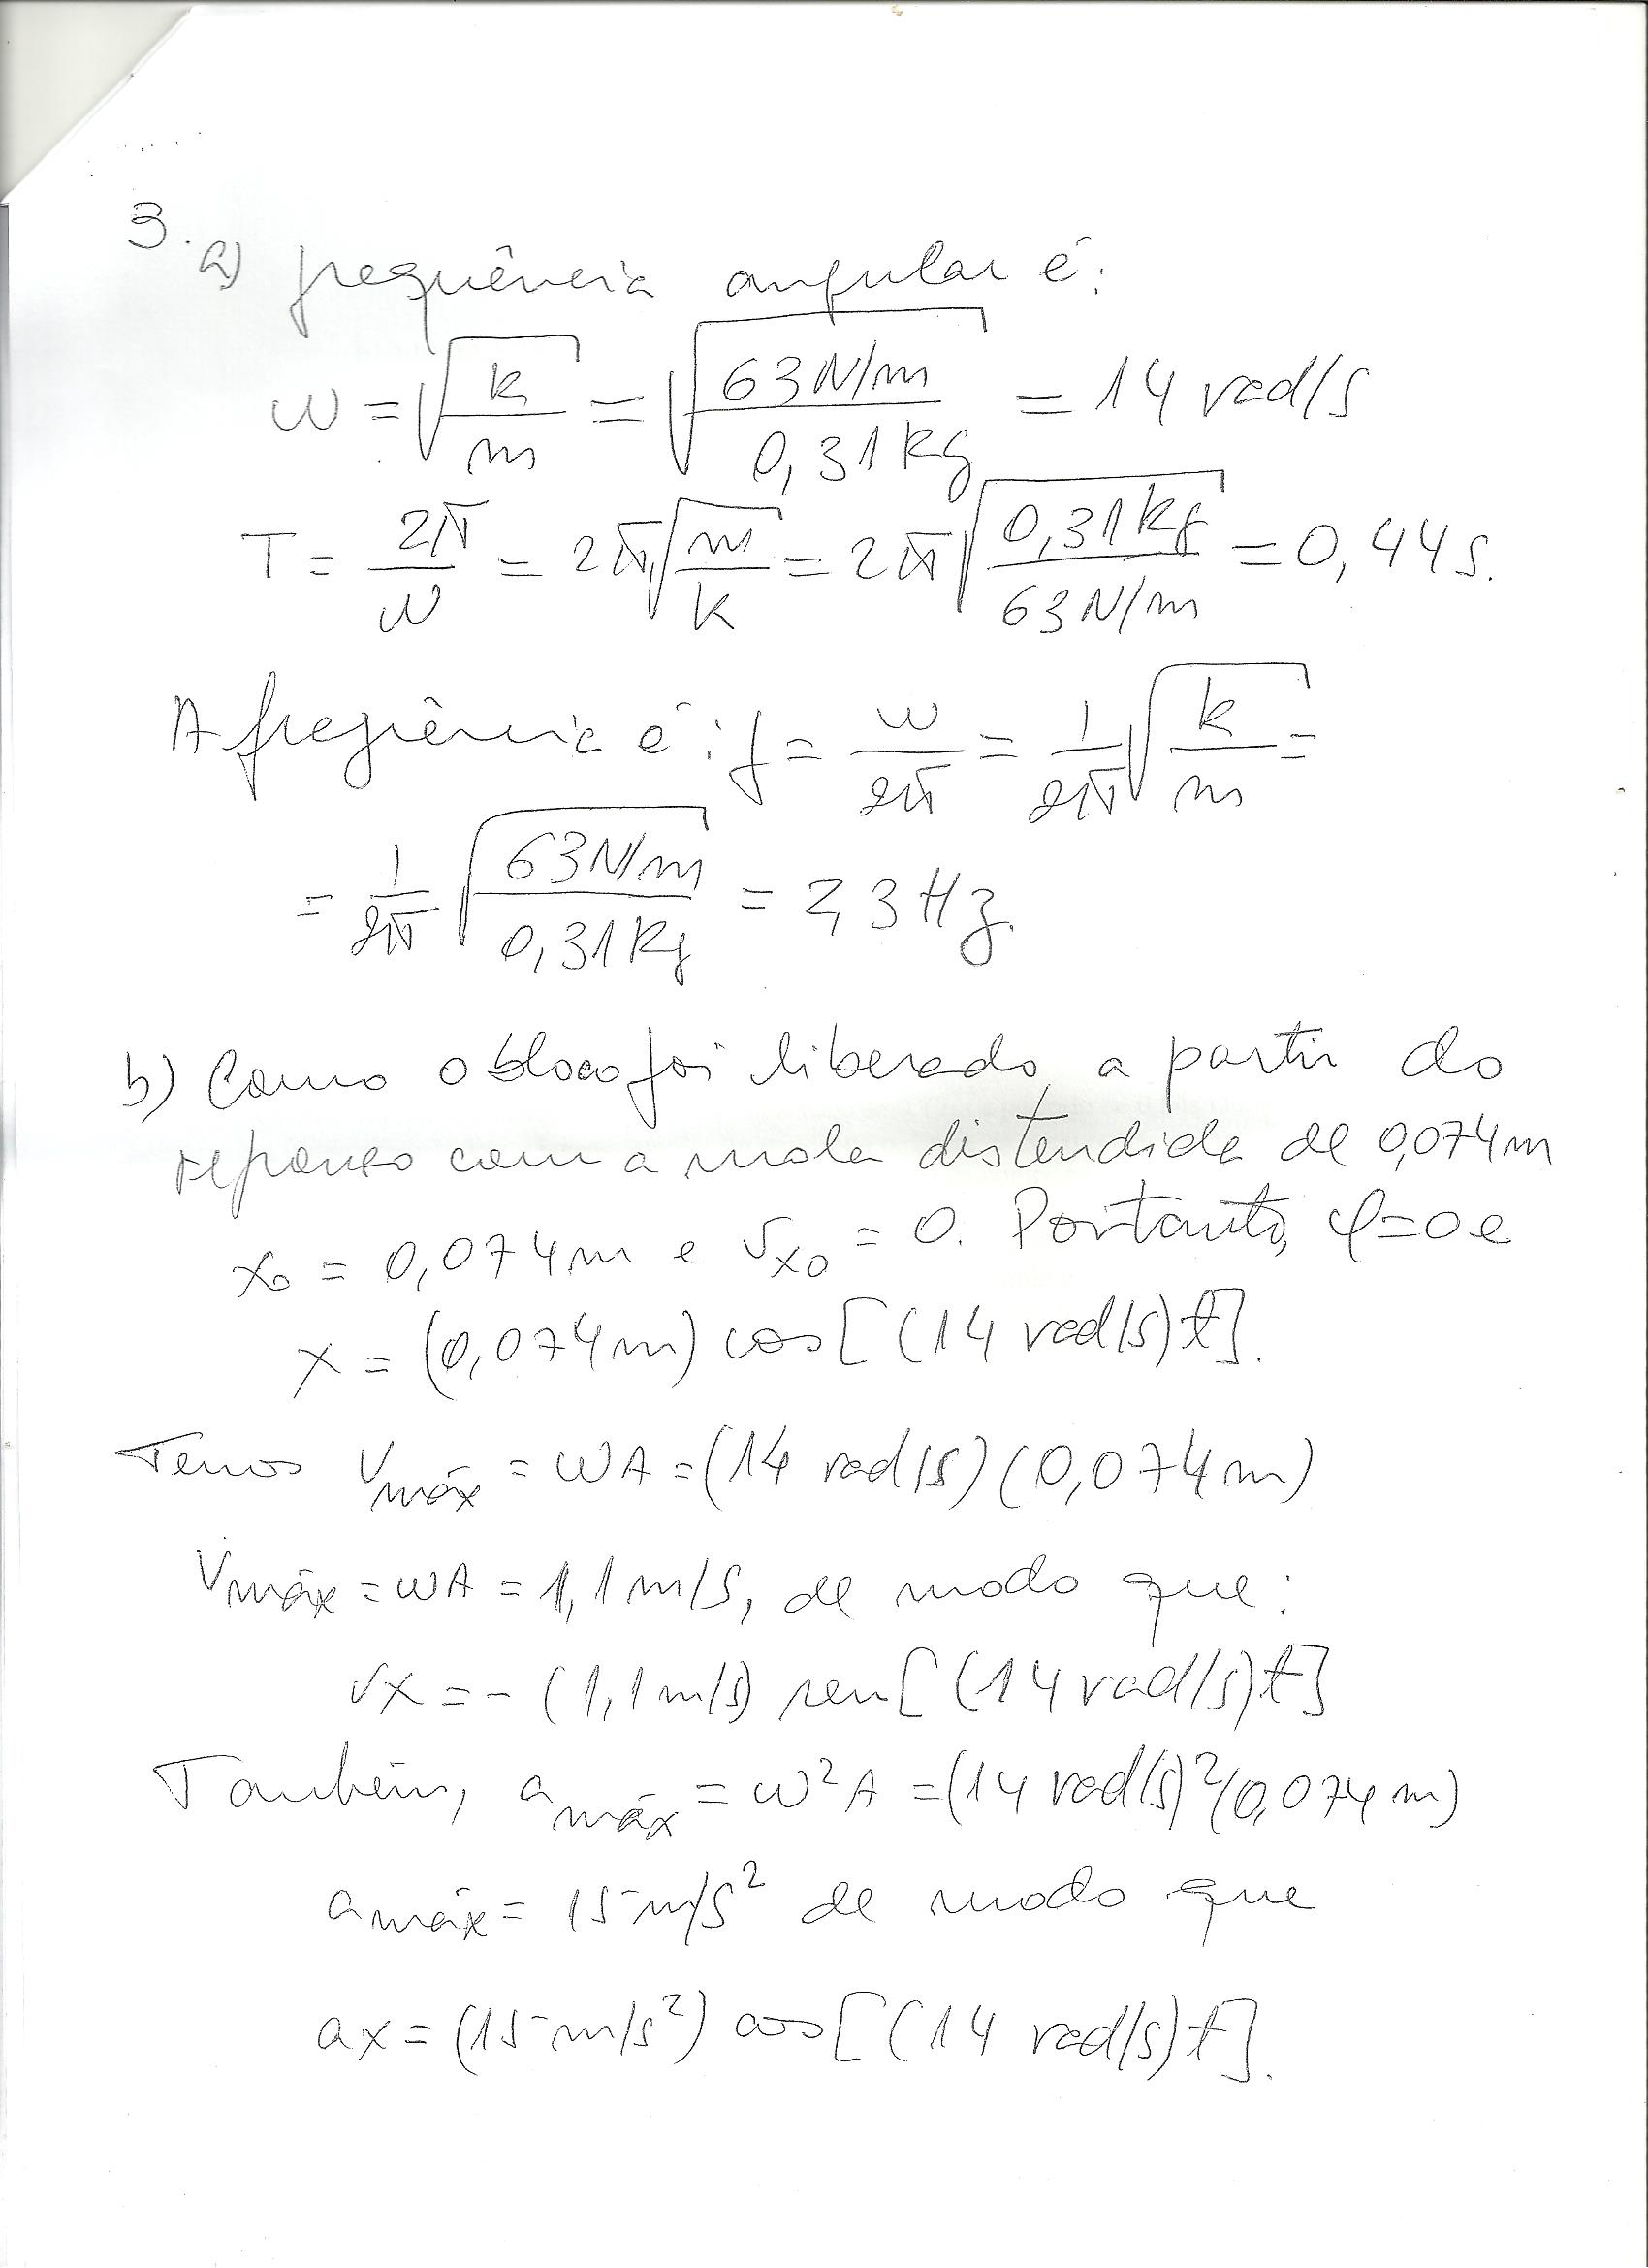 3.
a) frequência angular é:
w = √(k/m) = √(63N/m / 0,31kg) = 14 rad/s
T = 2π/w = 2π√(m/k) = 2π√(0,31kg / 63N/m) = 0,44s.
A freqüência é: f = w/2π = 1/2π √(k/m) =
= 1/2π √(63N/m / 0,31kg) = 2,3Hz.
b) Como o bloco foi liberado a partir do
repouso com a mola distendida de 0,074m
x₀ = 0,074m e vx₀ = 0. Portanto, φ=0 e
x = (0,074m) cos[(14 rad/s)t].
Temos Vmáx = wA = (14 rad/s)(0,074m)
Vmáx = wA = 1,1m/s, de modo que:
vx = - (1,1m/s) sen[(14rad/s)t]
Também, amáx = w²A = (14 rad/s)²(0,074m)
amáx = 15m/s² de modo que
ax = (15m/s²) cos[(14 rad/s)t].